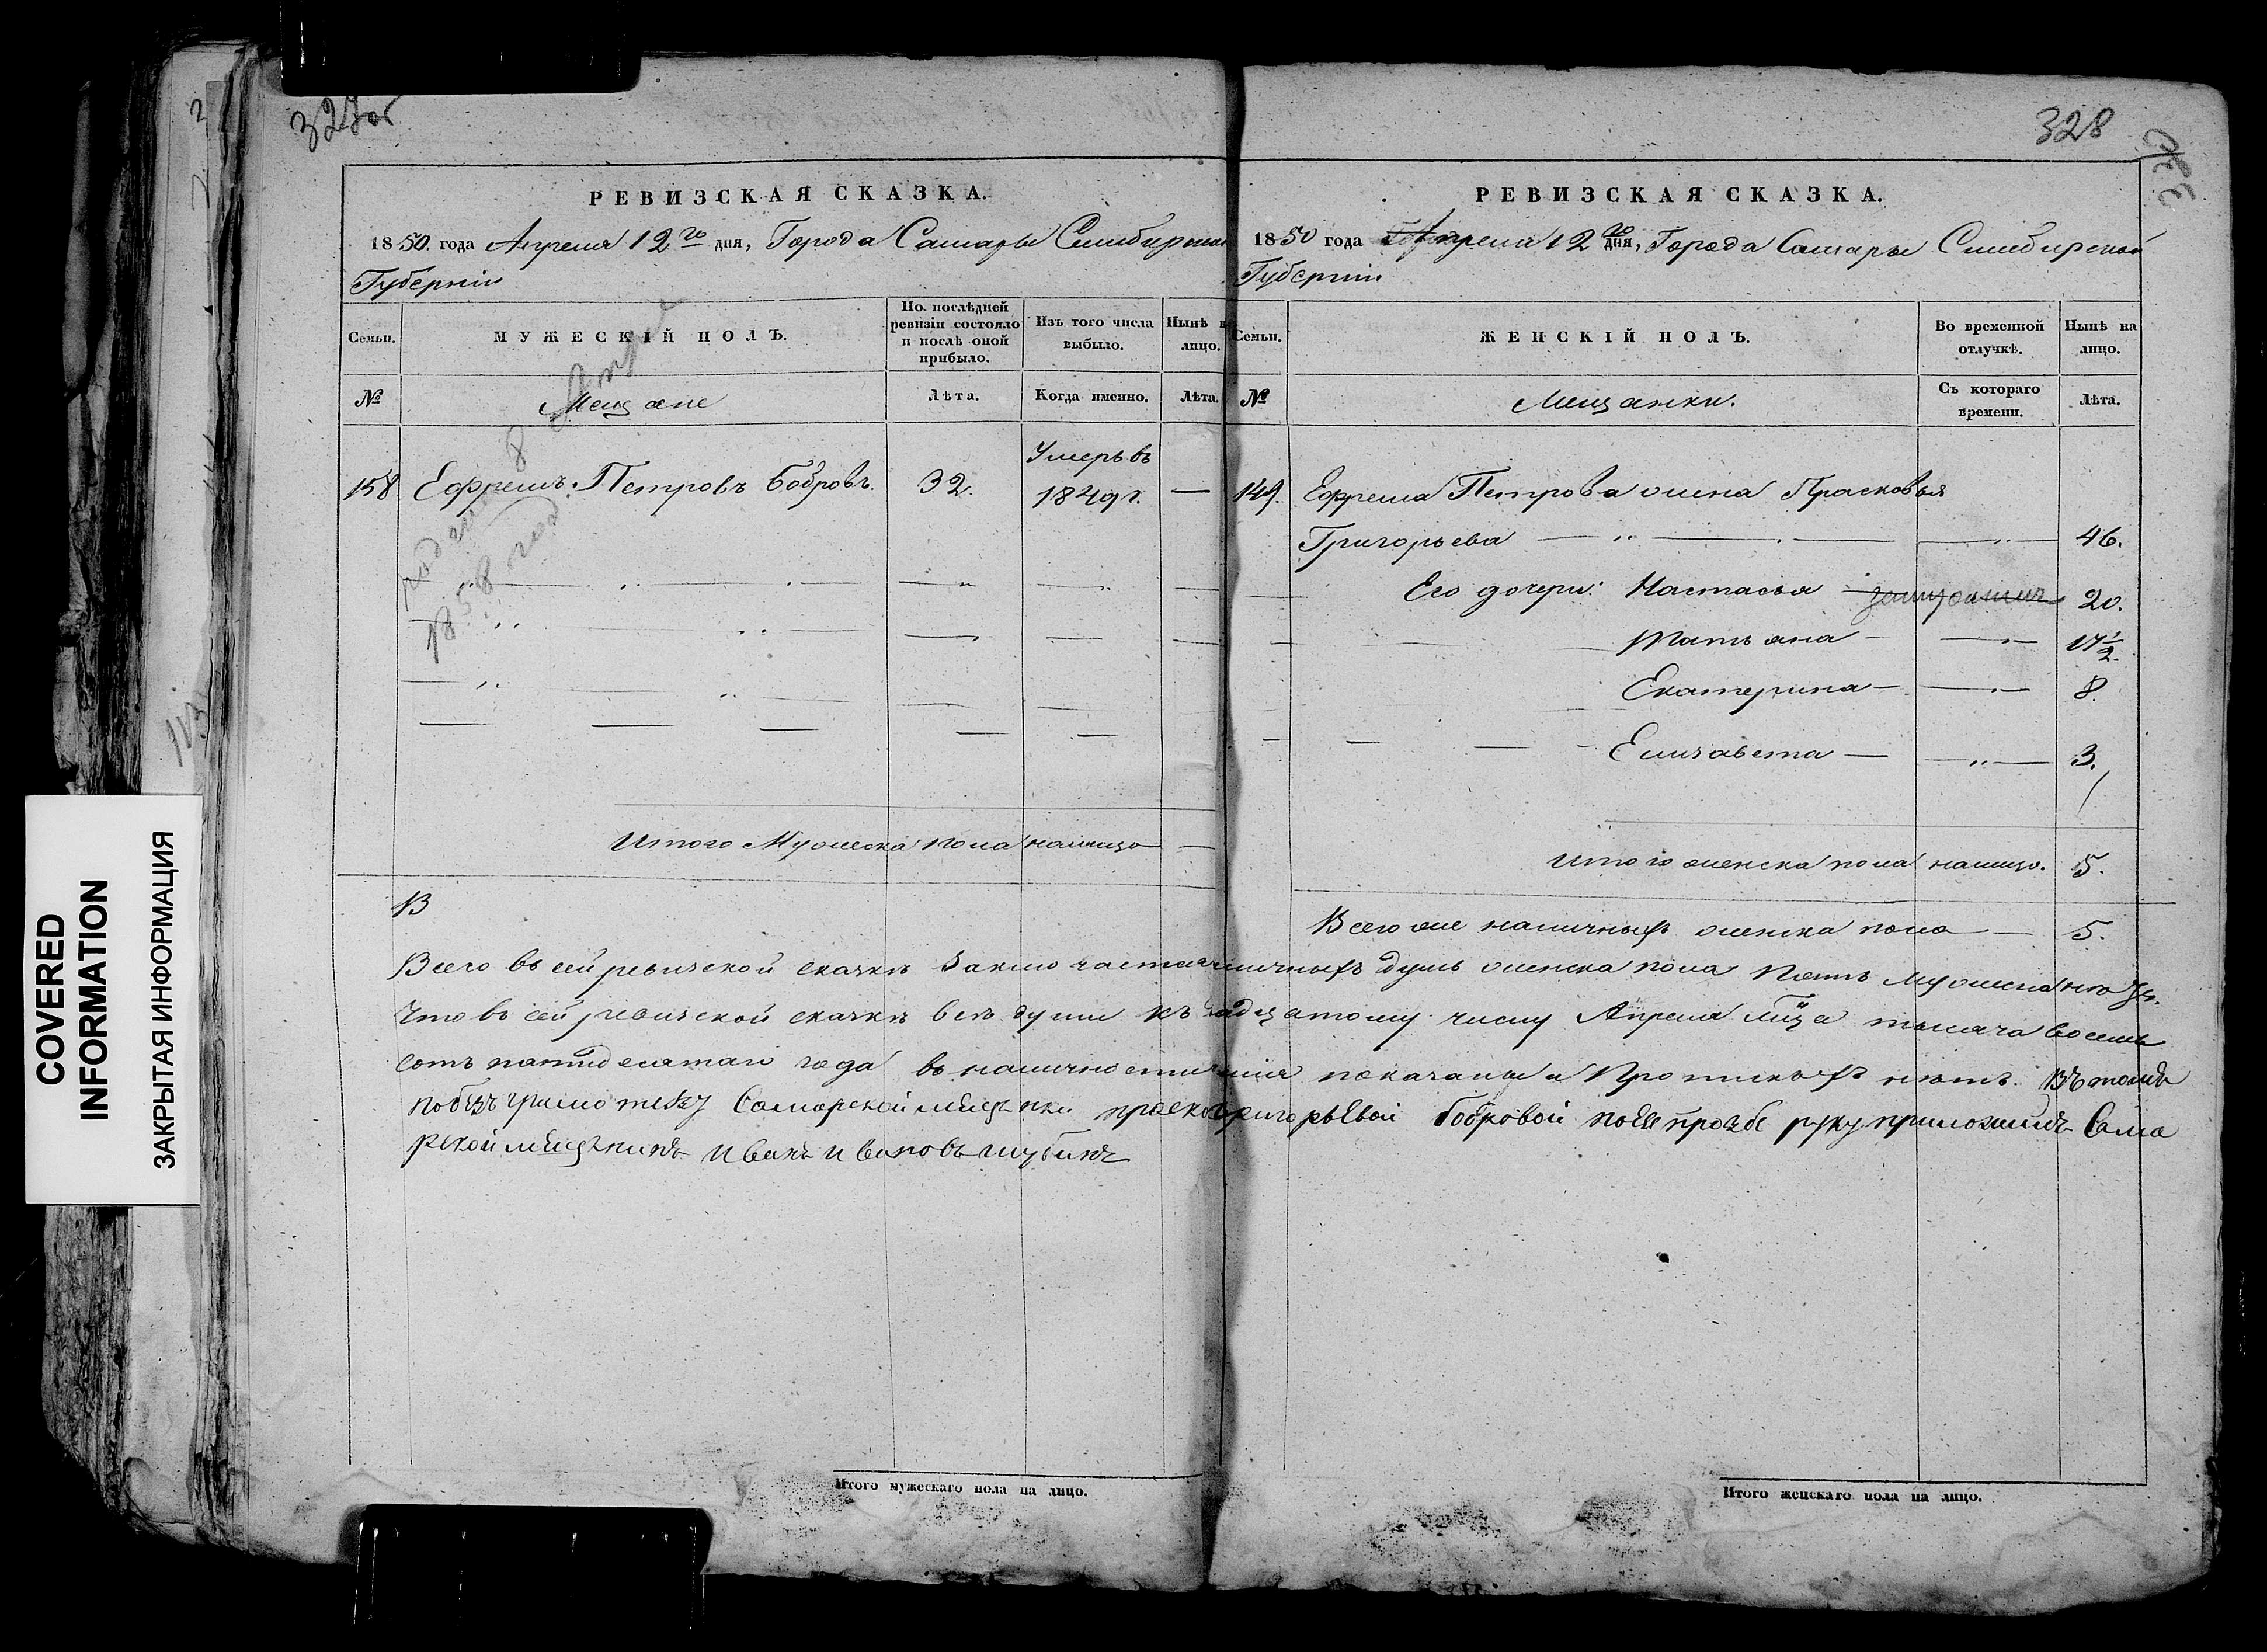 327об
РЕВИЗСКАЯ СКАЗКА.
1850. года Апреля 12го дня, Города Самары Симбирской
Губернiи
Семьи. МУЖЕСКІЙ ПОЛЪ. По послѣдней ревизіи состояло и послѣ оной прибыло. Изъ того числа выбыло. Нынѣ на лицо.
№ Мещане Лѣта. Когда именно. Лѣта.
158 Ефремъ Петровъ Бобровъ. 32. Умеръ въ 1849 г. —
1858 год
Итого Мужеска пола налицо —
328
РЕВИЗСКАЯ СКАЗКА.
1850 года Апреля 12го дня, Города Самары Симбирской
Губернiи
Семьи. ЖЕНСКІЙ ПОЛЪ. Во временной отлучкѣ. Нынѣ на лицо.
№ Мещанки. Съ котораго времени. Лѣта.
149. Ефрема Петрова жена Прасковья
Григорьева 46.
Его дочери: Настасья замужемъ 20.
Татьяна 17 1/2.
Екатерина 8.
Елизавета 3.
Итого женска пола налицо. 5.
Всего же наличныхъ женска пола — 5.
Всего въ сей ревизской сказкѣ заключается наличныхъ душъ женска пола Пять мужеска
Что въ сей ревизской сказкѣ всѣ души къ числу Апреля м͠ца тысяча восемь
сотъ пятидесятаго года въ наличности показаны и Прописныхъ нѣтъ. Въ томъ
Самарской мещанки Григорьевой Бобровой по ее прозбе руку приложилъ Сама
рской мещенинъ Иванъ Ивановъ шубинъ
Итого мужескаго пола на лицо.
Итого женскаго пола на лицо.
COVERED
INFORMATION
ЗАКРЫТАЯ ИНФОРМАЦИЯ